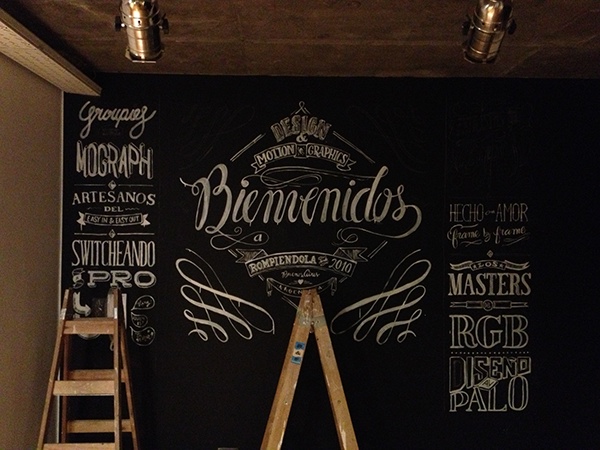 Groupies
MOGRAPH
ARTESANOS
DEL
EASY IN & EASY OUT
SWITCHEANDO
PRO
DESIGN
&
MOTION GRAPHICS
Bienvenidos
a
ROMPIENDOLA 2010
Buenos Aires
HECHO con AMOR
frame by frame
LOS
MASTERS
RGB
DISEÑO
PALO